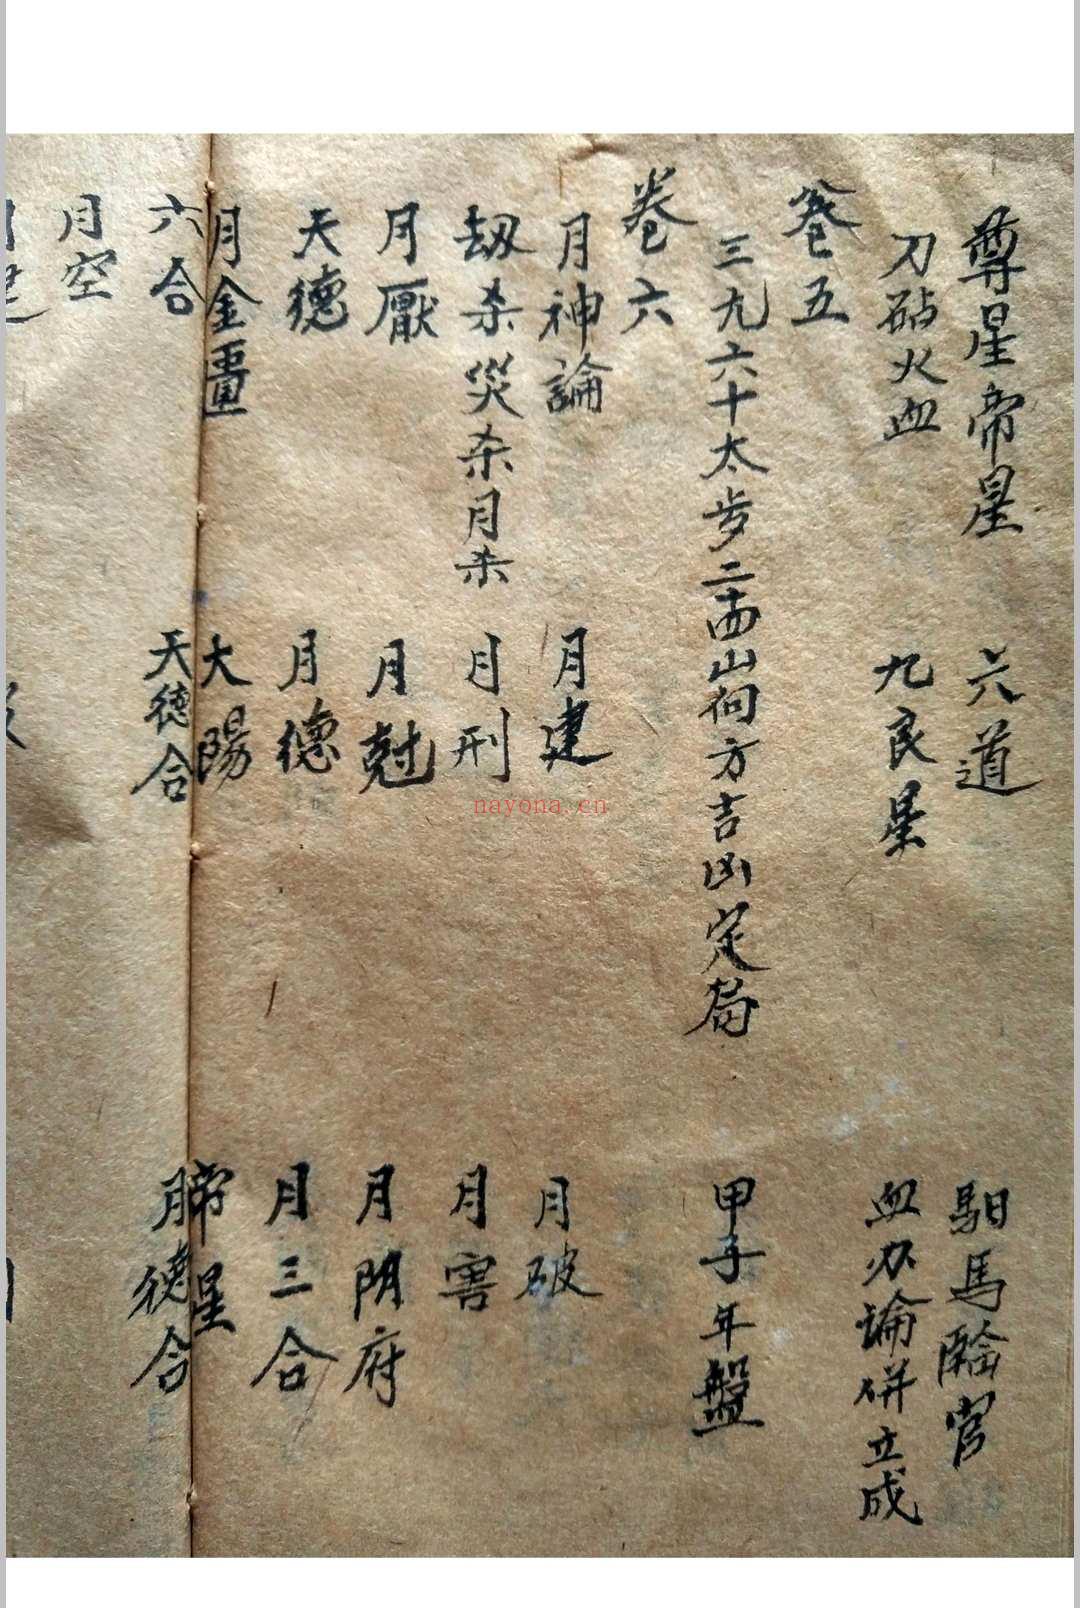 尊星帝星　六道　馹馬臨官
刀砧火血　九良星　血刃論併立成
卷五
三九六十太歩二十四山向方吉凶定局　甲子年盤
卷六
月神論　月建　月破
劫杀災杀月杀　月刑　月害
月厭　月尅　月阴府
天德　月德　月三合
月金匱　太陽　帝星
六合　天德合　月德合
月空
nayona.cn